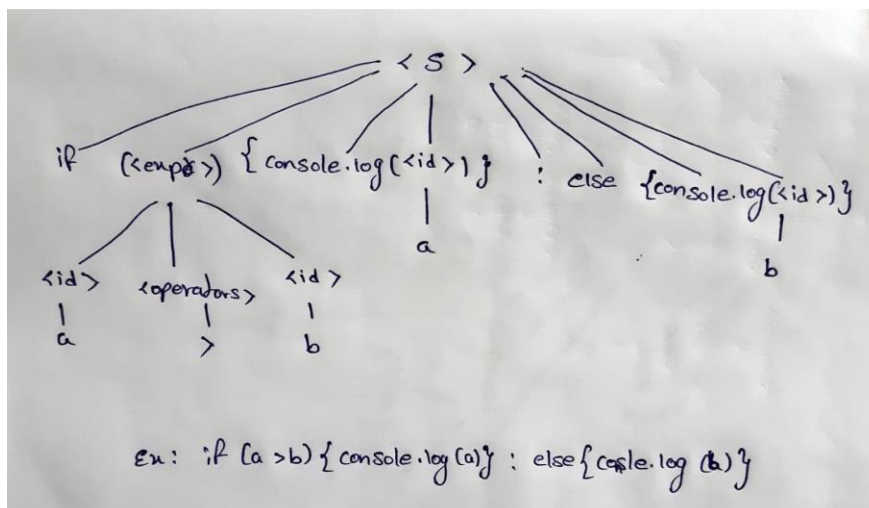 < S >
if (<expr>) {console.log(<id>)} : else {console.log(<id>)}
a
b
<id> <operators> <id>
a > b
Ex: if (a >b) {console.log(a)} : else{cosle.log (b)}